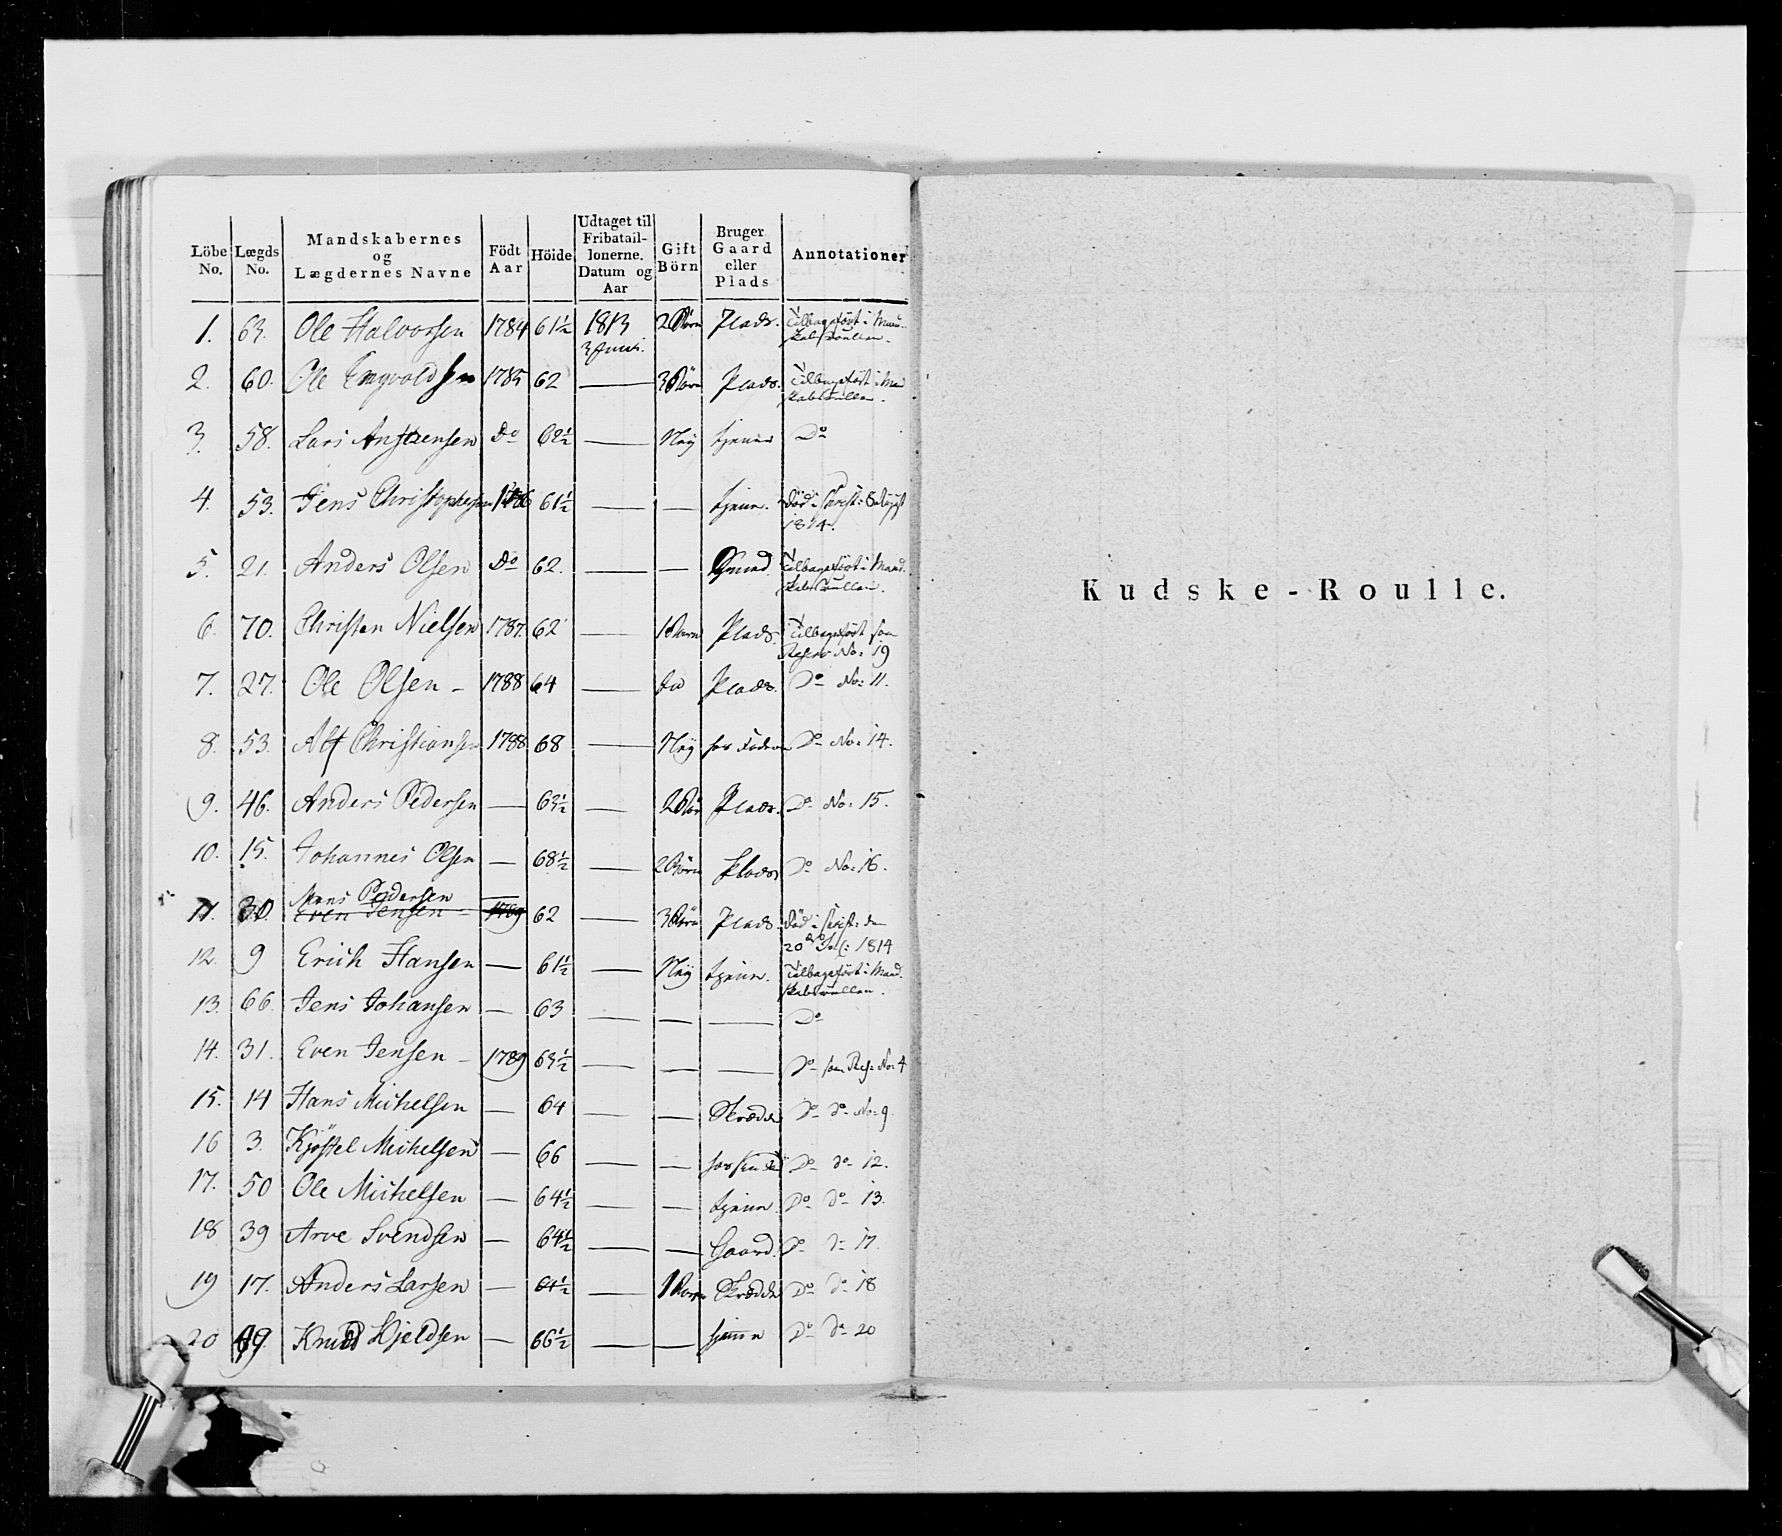 Löbe No. Lægds No. Mandskabernes og Lægdernes Navne Födt Aar Höide Udtaget til Fribataillonerne. Datum og Aar Gift Börn Bruger Gaard eller Plads Annotationer
1. 63. Ole Halvorsen 1784 61½ 1813 3 Juni. 2 Börn Plads. Tilbageført i Mandskabsroullen.
2. 60. Ole Engvoldsen 1785 62 — 3 Börn Plads. Tilbageført i Mandskabsroullen.
3. 58. Lars Anstensen Do 62½ — Neÿ tjener Do
4. 53. Jens Christophersen 1786 61½ — — tjener. Död i 8 1814.
5. 21. Anders Olsen Do 62. — — Tilbageført i Mandskabsroullen.
6. 70. Christen Nielsen 1787. 62 — 1 Barn Plads. Tilbageført som Reserv No: 19
7. 27. Ole Olsen - 1788 64 — do Plads. Do No: 11.
8. 53. Alf Christiansen 1788 68 — Neÿ hos Faderen Do No: 14.
9. 46. Anders Pedersen — 63½ — 2 Bör Plads. Do No: 15.
10. 15. Johannes Olsen — 68½ — 2 Börn Plads Do No: 16.
Mons Pedersen —
11. 30. Even Jensen - 1789 62 — 3 Börn Plads. Död i den 20de 1814
12. 9 Erich Hansen — 61½ — Neÿ tjener. Tilbageført i Mandskabsroullen.
13. 66. Jens Johansen — 63 — — — Do
14. 31. Even Jensen - 1789 63½ — — — Do som Res: No: 4
15. 14 Hans Michelsen — 64 — — Skrædder Do do No: 9.
16 3. Kjøstel Michelsen — 66 — — Do do 12.
17. 50 Ole Michelsen — 64½ — — tjener Do do 13.
18 39 Arve Svendsen — 64½ — — Gaard. Do do 17.
19 17. Anders Larsen — 64½ — 1 Barn Skrædder Do do 18
20 49. Knud Kjeldsen — 66½ — — tjener Do do 20
Kudske-Roulle.